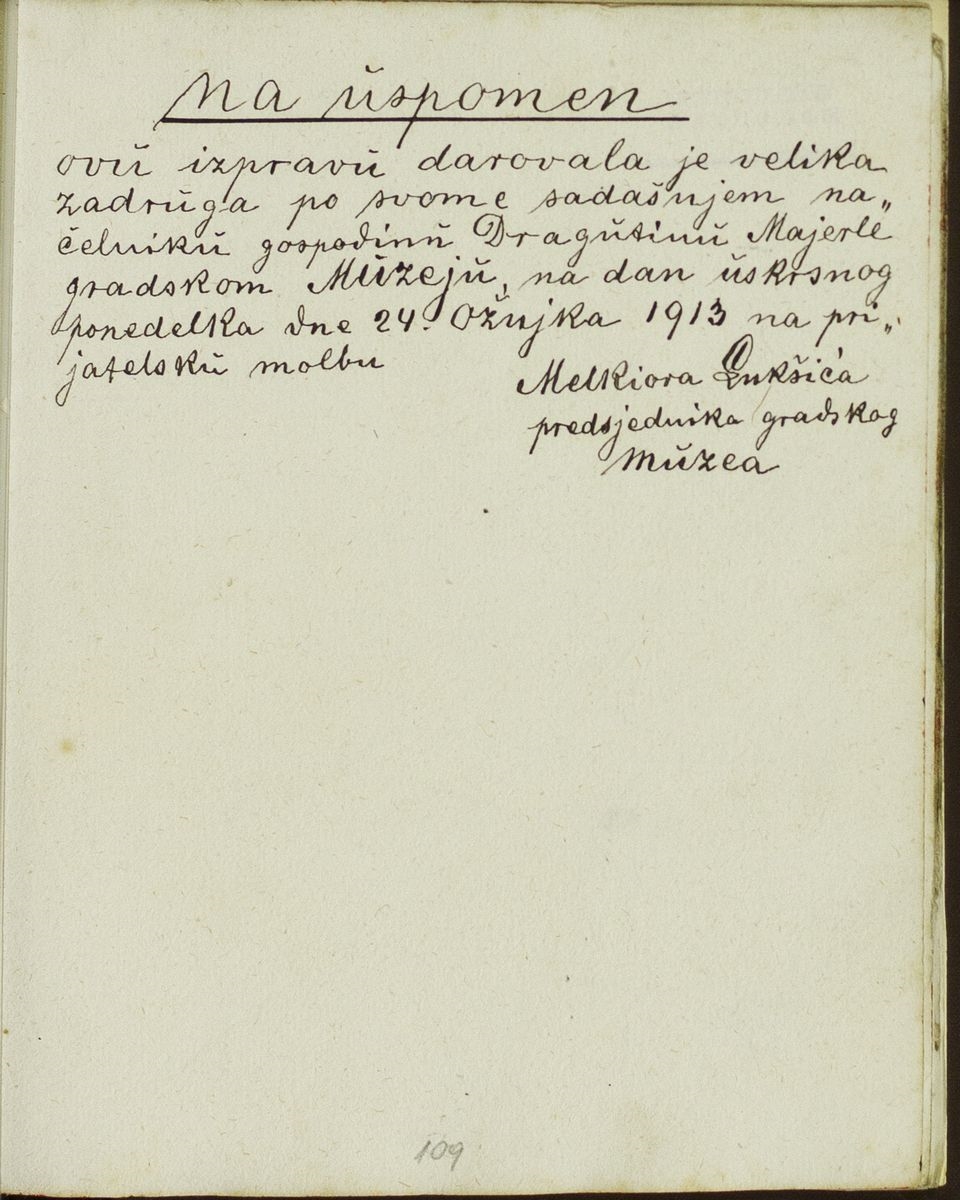 Na uspomen
ovu izpravu darovala je velika
zadruga po svome sadašnjem na„
čelniku gospodinu Dragutinu Majerle
gradskom Muzeju, na dan uskrsnog
ponedelka dne 24. Ožujka 1913 na pri„
jatelsku molbu
Melkiora Lukšića
predsjednika gradskog
muzea
109